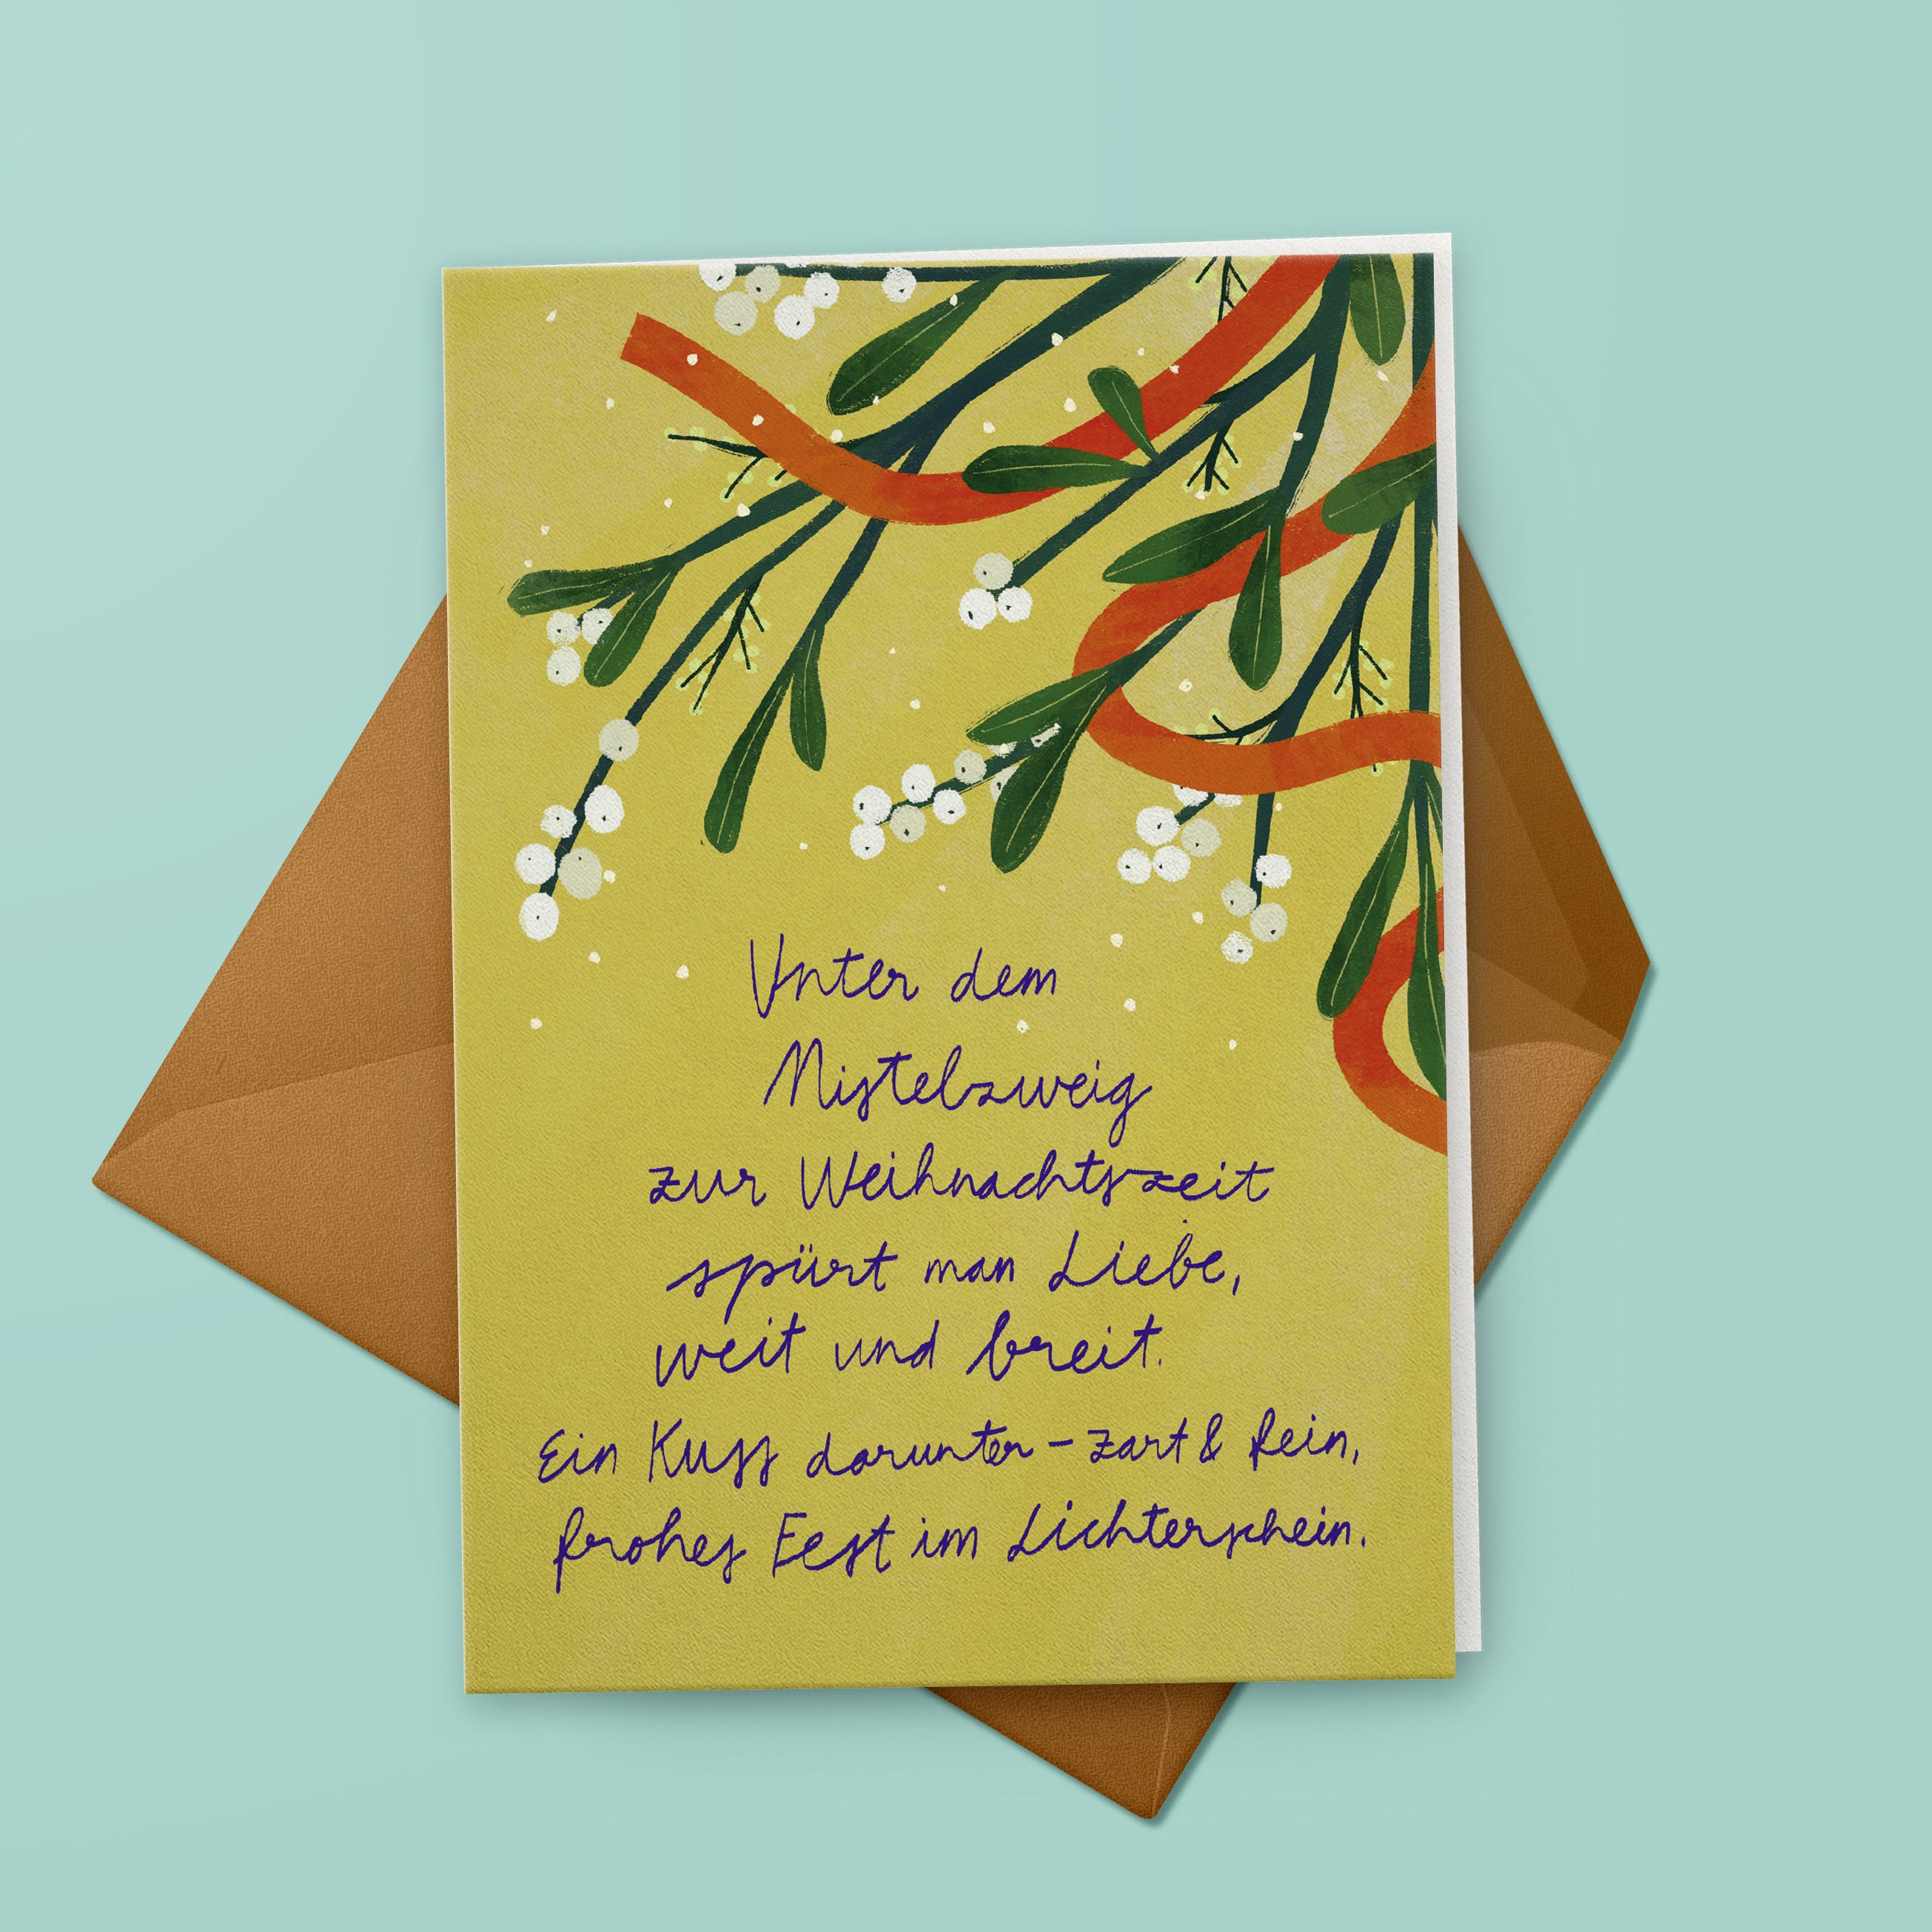 Unter dem
Mistelzweig
zur Weihnachtszeit
spürt man Liebe,
weit und breit.
Ein Kuss darunter – zart & fein,
frohes Fest im Lichterschein.